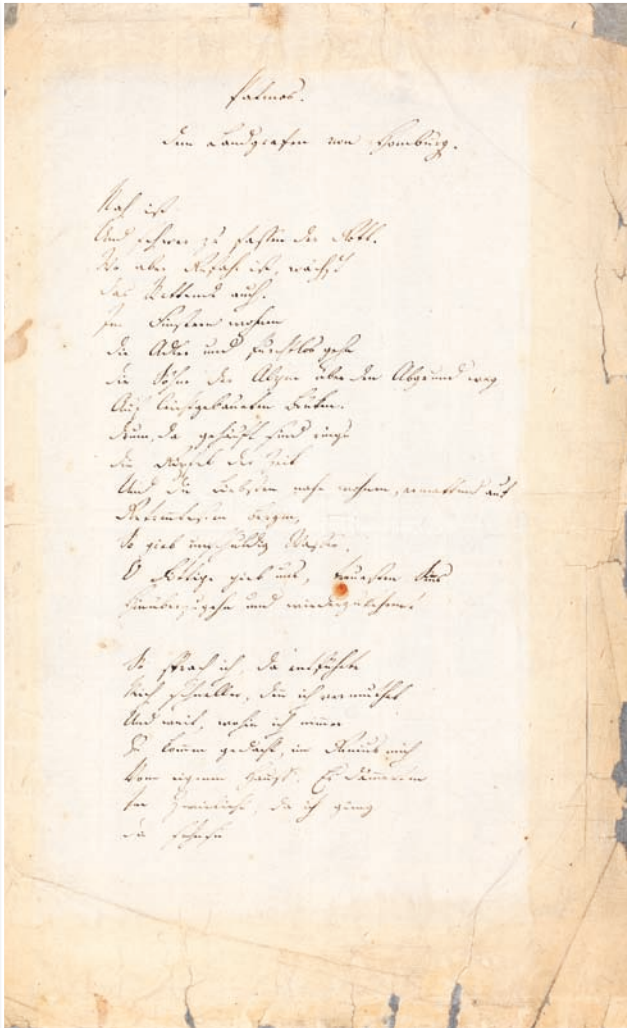 Patmos.
Dem Landgrafen von Homburg.
Nah ist
Und schwer zu fassen der Gott.
Wo aber Gefahr ist, wächst
Das Rettende auch.
Im Finstern wohnen
Die Adler und furchtlos gehn
Die Söhne der Alpen über den Abgrund weg
Auf leichtgebaueten Brüken.
Drum, da gehäuft sind rings
Die Gipfel der Zeit
Und die Liebsten nahe wohnen, ermattend auf
Getrenntesten Bergen,
So gieb unschuldig Wasser,
O Fittige gieb uns, treuesten Sinns
Hinüberzugehn und wiederzukehren!
So sprach ich, da entführte
Mich schneller, denn ich vermuthet
Und weit, wohin ich nimmer
Zu kommen gedacht, ein Genius mich
Vom eigenen Hauß. Es dämmerten
Im Zwielicht, da ich gieng